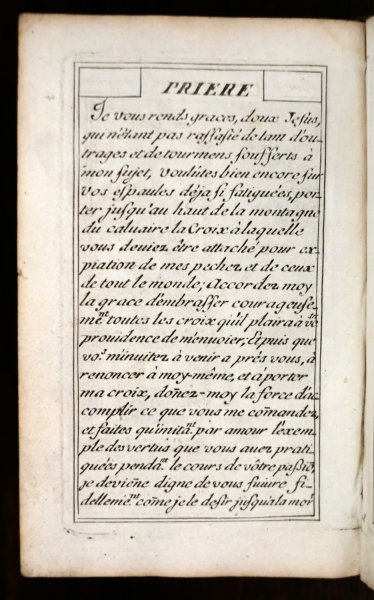 PRIERE
Je vous rends graces, doux Jesus,
qui n'étant pas rassasié de tant d'ou-
trages et de tourmens soufferts à
mon sujet, voulûtes bien encore sur
vos espaules déja si fatiguées, por-
ter jusqu'au haut de la montagne
du caluaire la Croix à laquelle
vous deuiez être attaché pour ex-
piation de mes pechez et de ceux
de tout le monde; Accordez moy
la grace d'embrasser courageuse-
mẽnt toutes les croix qu'il plaira à vr̃e
prouidence de m'enuoier; Et puis que
vo.s m'inuitez à venir a prés vous, à
renoncer à moy-même, et à porter
ma croix, doñez-moy la force d'ac
complir ce que vous me com̃andez,
et faites qu'imitãnt par amour l'exem-
ple des vertus que vous auez prati
quées pendãnt le cours de vôtre passiõ,
je devieñe digne de vous suiure fi-
dellemẽnt com̃e je le desir jusqua la mor